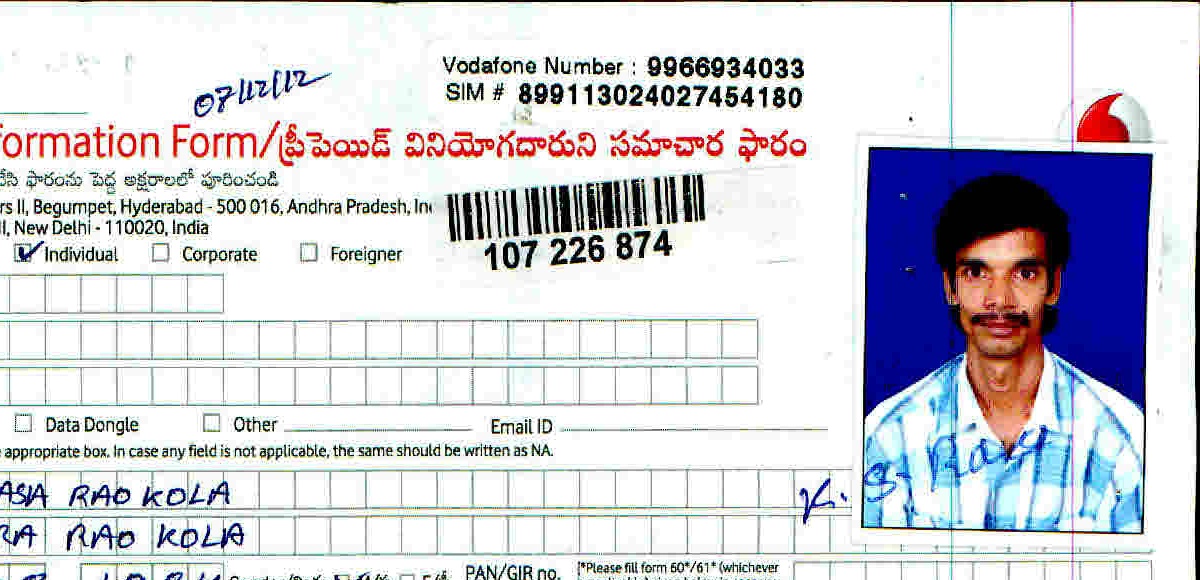 07/12/12
Vodafone Number : 9966934033
SIM # 899113024027454180
formation Form/ప్రీపెయిడ్ వినియోగదారుని సమాచార ఫారం
చేసి ఫారంను పెద్ద అక్షరాలలో పూరించండి
rs II, Begumpet, Hyderabad - 500 016, Andhra Pradesh, In
II, New Delhi - 110020, India
107 226 874
Individual Corporate Foreigner
Data Dongle Other Email ID
appropriate box. In case any field is not applicable, the same should be written as NA.
ASIA RAO KOLA
RA RAO KOLA
K. S. Rao
PAN/GIR no. [*Please fill form 60*/61* (whichever